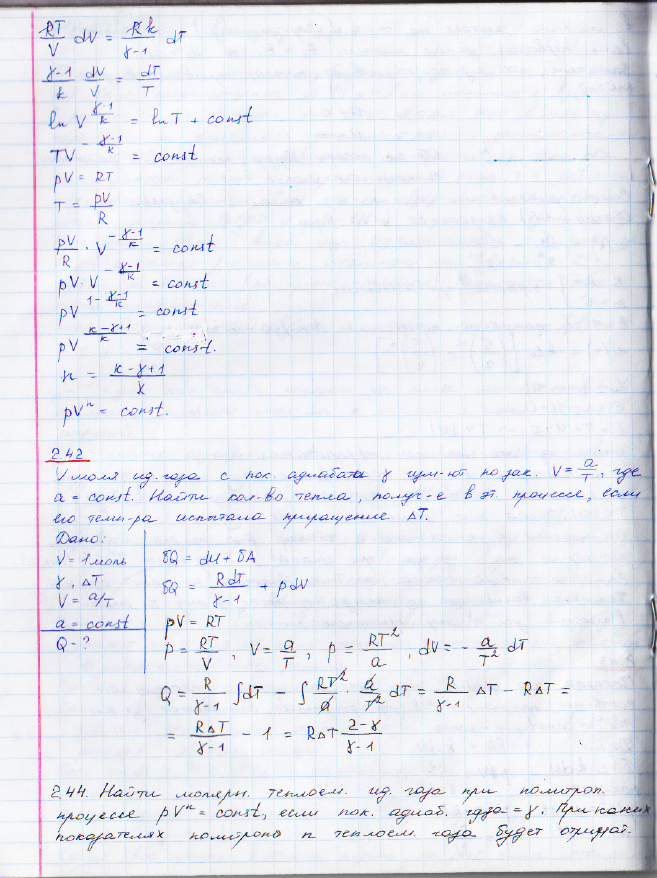 RT/V dV = Rk/γ-1 dT
γ-1/k dV/V = dT/T
ln V^(γ-1/k) = ln T + const
TV^(-γ-1/k) = const
pV = RT
T = pV/R
pV/R · V^(-γ-1/k) = const
pV·V^(-γ-1/k) = const
pV^(1-γ-1/k) = const
pV^(k-γ+1/k) = const.
n = k-γ+1/k
pV^n = const.
2.42
1 моля ид. газа с пок. адиабаты γ изм-ют по зак. V = a/T, где
a = const. Найти кол-во тепла, получ-е в эт. процессе, если
его темп-ра испытала приращение ΔT.
Дано:
ν = 1 моль
γ, ΔT
V = a/T
a = const
Q - ?
δQ = dU + δA
δQ = RdT/γ-1 + pdV
pV = RT
p = RT/V, V = a/T, p = RT²/a, dV = - a/T² dT
Q = R/γ-1 ∫dT - ∫ RT²/a · a/T² dT = R/γ-1 ΔT - RΔT =
= RΔT/γ-1 - 1 = RΔT 2-γ/γ-1
2.44. Найти молярн. теплоем. ид. газа при политроп.
процессе pV^n = const, если пок. адиаб. газа = γ. При каких
показателях политропы n теплоем. газа будет отрицат.